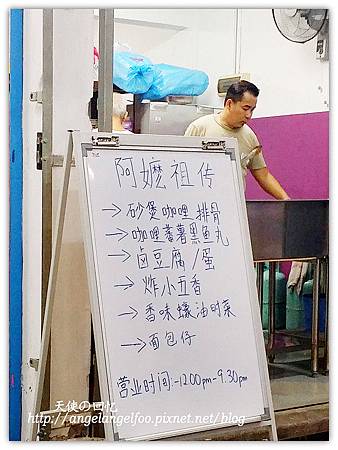 阿嬷祖传
→砂煲咖哩排骨
→咖哩蕃薯黑鱼丸
→卤豆腐/蛋
→炸小五香
→香味蠔油时菜
→面包仔
营业时间:-1200pm-9.30pm
天使の回忆
http://angelangelfoo.pixnet.net/blog